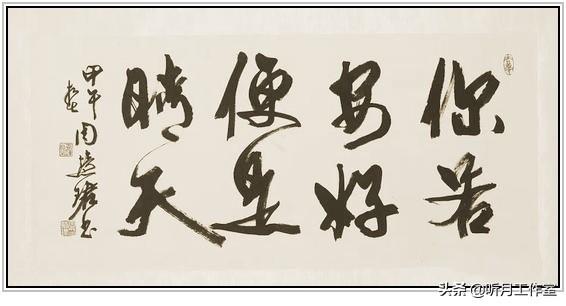 你若
安好
便是
晴天
甲午
周慧珺书
头条 @听月工作室